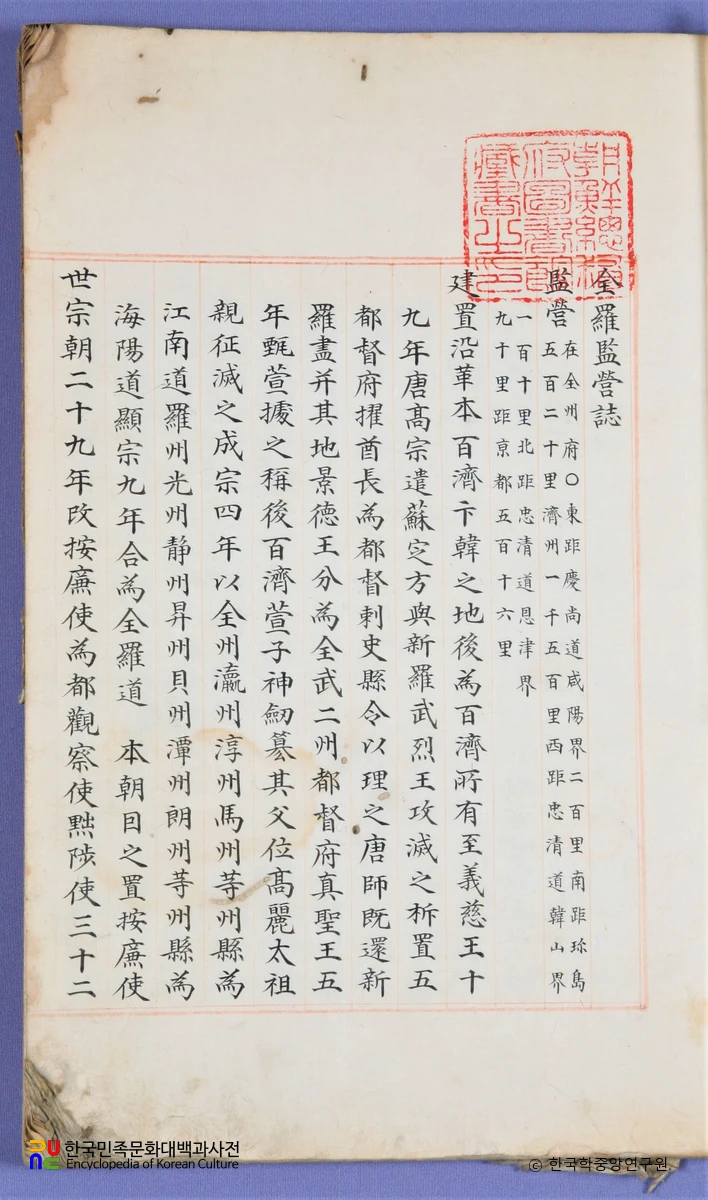 朝鮮總督
府圖書館
藏書之印
全羅監營誌
監營
在全州府○東距慶尚道咸陽界二百里南距珎島
五百二十里濟州一千五百里西距忠清道韓山界
一百十里北距忠清道恩津界
九十里距京都五百十六里
建置沿革本百濟卞韓之地後為百濟所有至義慈王十
九年唐髙宗遣蘇㝎方與新羅武烈王攻滅之析置五
都督府擢酋長為都督刺史縣令以理之唐師既還新
羅盡并其地景德王分為全武二州都督府真聖王五
年甄萱據之稱後百濟萱子神劒簒其父位髙麗太祖
親征滅之成宗四年以全州瀛州淳州馬州䓁州縣為
江南道羅州光州靜州昇州貝州潭州朗州䓁州縣為
海陽道顯宗九年合為全羅道 本朝因之置按廉使
世宗朝二十九年改按廉使為都觀察使黜陟使三十二
한국민족문화대백과사전
Encyclopedia of Korean Culture
© 한국학중앙연구원